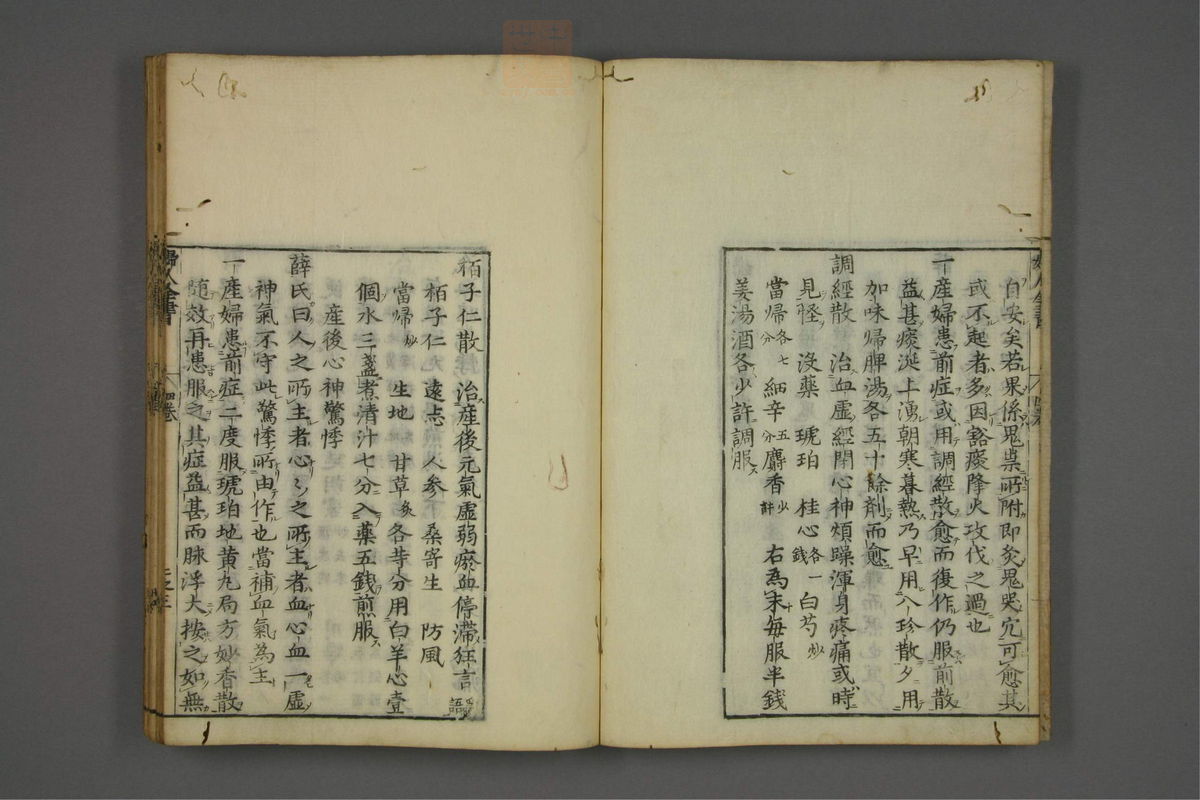 自安矣若果係鬼祟所附即灸鬼哭穴可愈其
或不起者多因豁痰降火攻伐之過也
一産婦患前症或用調經散愈而復作仍服前散
益甚痰涎上湧朝寒暮熱乃早用八珍散夕用
加味帰脾湯各五十餘剤而愈
調經散 治血虚經閉心神煩躁渾身疼痛或時
見怪 沒薬 琥珀 桂心各一錢 白芍炒
當帰各七分 細辛五分 麝香少許 右為末毎服半錢
姜湯酒各少許調服
栢子仁散 治産後元氣虚弱瘀血停滞狂言語
栢子仁 遠志 人参 桑寄生 防風
當帰炒 生地 甘草炙 各等分用白羊心壹
個水三盞煮清汁七分入薬五錢煎服
産後心神驚悸
薛氏曰人之所主者心心之所主者血心血一虚
神氣不守此驚悸所由作也當補血氣為主
一産婦患前症二度服琥珀地黄丸局方妙香散
随效再患服之其症益甚而脉浮大按之如無
婦人全書 四巻